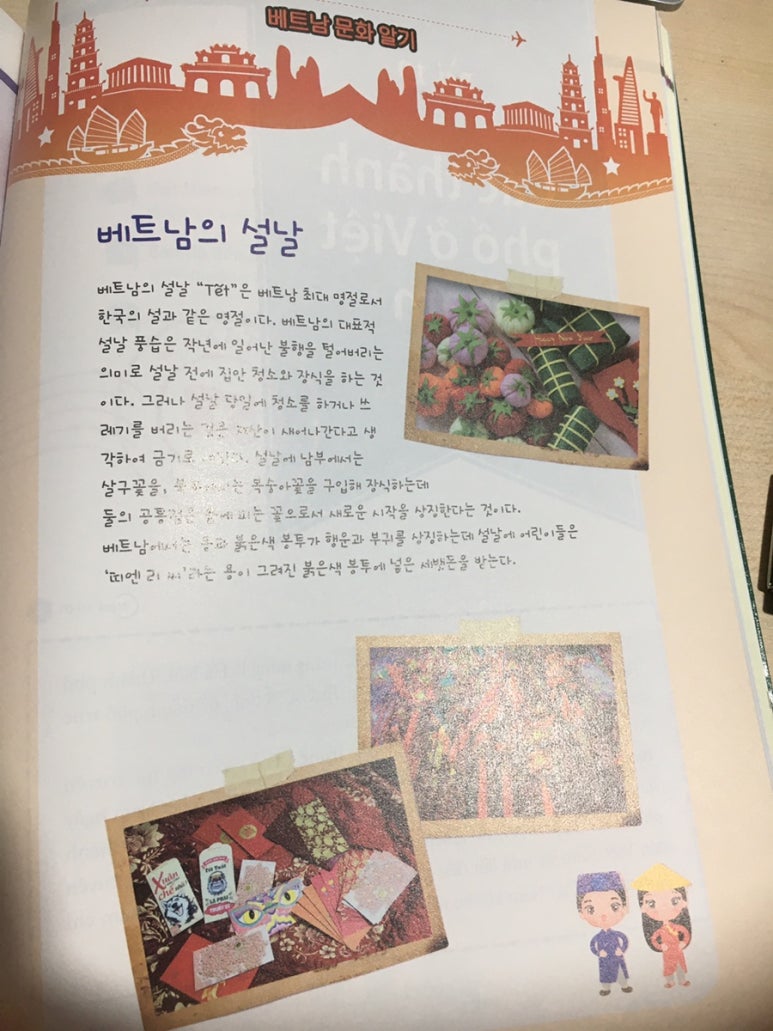 베트남 문화 알기
베트남의 설날
베트남의 설날 “Tết”은 베트남 최대 명절로서
한국의 설과 같은 명절이다. 베트남의 대표적
설날 풍습은 작년에 일어난 불행을 털어버리는
의미로 설날 전에 집안 청소와 장식을 하는 것
이다. 그러나 설날 당일에 청소를 하거나 쓰
레기를 버리는 것은 재산이 새어나간다고 생
각하여 금기로 설날에 남부에서는
살구꽃을, 복숭아꽃을 구입해 장식하는데
둘의 공통점은 피는 꽃으로서 새로운 시작을 상징한다는 것이다.
베트남에서는 용과 붉은색 봉투가 행운과 부귀를 상징하는데 설날에 어린이들은
‘띠엔 리 씨’라는 용이 그려진 붉은색 봉투에 넣은 세뱃돈을 받는다.
Happy New Year
Xuân